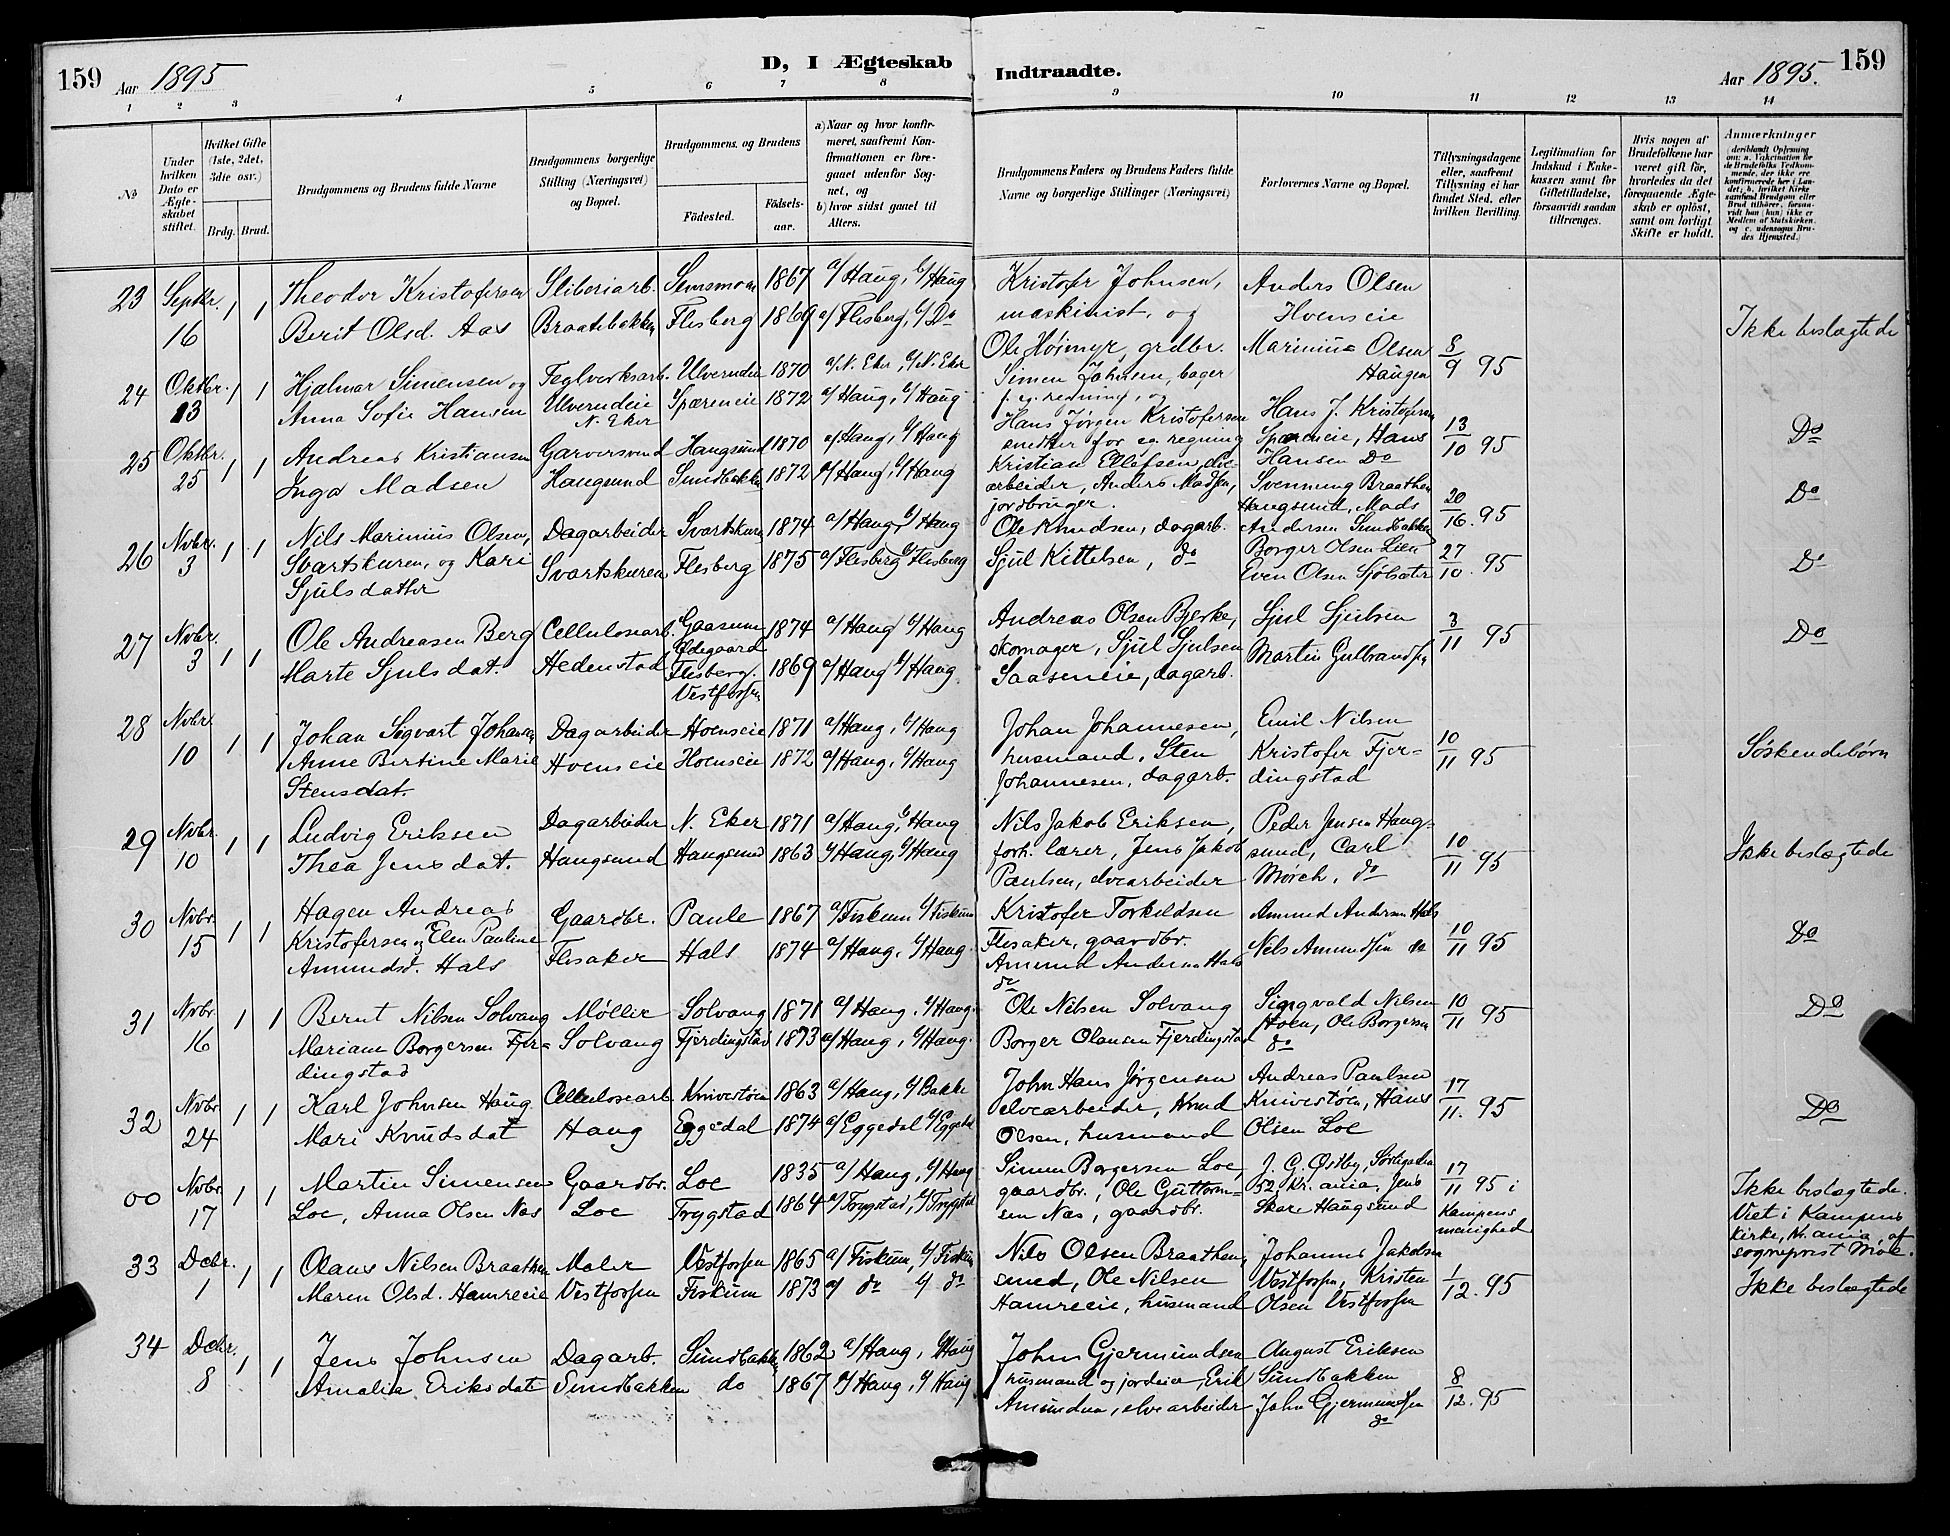 159 Aar 1895 D, I Ægteskab Indtraadte. Aar 1895. 159
1 2 3 4 5 6 7 8 9 10 11 12 13 14
No
Under hvilken Dato er Ægteskabet stiftet.
Hvilket Gifte (1ste, 2det, 3die osv.)
Brdg. Brud.
Brudgommens og Brudens fulde Navne
Brudgommens borgerlige Stilling (Næringsvei) og Bopæl.
Brudgommens. og Brudens
Fødested. Fødsels-aar.
a) Naar og hvor konfir-
meret, saafremt Kon-
firmationen er fore-
gaaet udenfor Sog-
net, og
b) hvor sidst gaaet til
Alters.
Brudgommens Faders og Brudens Faders fulde
Navne og borgerlige Stillinger (Næringsvei)
Forlovernes Navne og Bopæl.
Tillysningsdagene
eller, saafremt
Tillysning ei har
fundet Sted, efter
hvilken Bevilling.
Legitimation for
Indskud i Enke-
kassen samt for
Giftetilladelse,
forsaavidt saadan
tiltrænges.
Hvis nogen af
Brudefolkene har
været gift før,
hvorledes da det
foregaaende Ægte-
skab er opløst,
samt om lovligt
Skifte er holdt.
Anmærkninger
(deriblandt Oplysning
om: a. Vakcination for
de Brudefolks Vedkom-
mende, der ikke ere
konfirmerede her i Lan-
det; b. hvilket Kirke
samfund Brudgom eller
Brud tilhører, forsaa-
vidt han (hun) ikke er
Medlem af Statskirken.
og c. udensogns Bru-
des Hjemsted.)
23 Septbr. 1 1 Theodor Kristofersen Sliberiarb. Semsmoen 1867 a/ Haug, b/ Haug Kristofer Johnsen, Anders Olsen
16 Berit Olsd. Aas Braatebakken Flesberg 1869 a/ Flesberg, b/ Do maskinist, og Hoenseie Ikke beslægtede
Ole Høimyr, grdbr. Marinius Olsen 8/9 95
Haugen
24 Oktbr. 1 1 Hjalmar Simensen og Teglverksarb. Ulverudeie 1870 a/ N. Eker, b/ N. Eker Simen Johnsen, bager
13 Anna Sofie Hansen Ulverudeie Spæreneie 1872 a/ Haug, b/ Haug f. eg. regning, og Hans J. Kristofersen
N. Eker Hans Jørgen Kristofersen 13/10 95 Do
smed for eg. regning Spæreneie, Hans
Hansen Do
25 Oktbr. 1 1 Andreas Kristiansen Garversvend Haugsund 1870 a/ Haug, b/ Haug Kristian Ellefsen, elve-
25 Inga Madsen Haugsund Sundbakken 1872 a/ Haug, b/ Haug arbeider, Anders Madsen, Svenning Braathen Do
jordbruger. Haugsund, Mads 20/10. 95
Andersen Sundbakken
26 Nvbr. 1 1 Nils Marinius Olsen, Dagarbeider Svartskuren 1874 a/ Haug b/ Haug Ole Knudsen, dagarb.
3 Svartskuren, og Kari Svartskuren Flesberg 1875 a/ Flesberg b/ Flesberg Sjul Kittelsen, do Borger Olsen Lien 27/10. 95 Do
Sjulsdatter Even Olsen Sjølsæter
27 Nvbr. 1 1 Ole Andreasen Berg Cellulosearb. Gaasum 1874 a/ Haug b/ Haug Andreas Olsen Bjerke, Sjul Sjulsen 3/11 95 Do
3 Marte Sjulsdat. Hedenstad Ødegaard skomager, Sjul Sjulsen Martin Gulbrandsen
Flesberg. 1869 a/ Haug b/ Haug. Saaseneie, dagarb.
Vestfossen
28 Nvbr. 1 1 Johan Sigvart Johansen Dagarbeider Hoenseie 1871 a/ Haug, b/ Haug Johan Johannesen, Emil Nilsen 10/11 95 Søskendebørn
10 Anne Bertine Marie Hoenseie Hoenseie 1872 a/ Haug, b/ Haug husmand, Sten Kristofer Fjer-
Stensdat. Johannesen, dagarb. dingstad
29 Nvbr. 1 1 Ludvig Eriksen Dagarbeider N. Eker 1871 a/ Haug, b/ Haug Nils Jakob Eriksen, Peder Jensen Haug-
10 Thea Jensdat. Haugsund Haugsund 1863 a/ Haug, b/ Haug forh. lærer, Jens Jakob sund, Carl 10/11 95 Ikke beslægtede
Paulsen, elvearbeider Mørch. do
30 Nvbr. 1 1 Hagen Andreas Gaardbr. Paule 1867 a/ Fiskum b/ Fiskum Kristofer Torkildsen Amund Andersen Hals
15 Kristofersen og Elen Pauline Flesaker Hals 1874 a/ Haug, b/ Haug. Flesaker, gaardbr. Nels Amundsen do 10/11 95 Do
Amundsd. Hals Amund Andersen Hals
do
31 Nvbr. 1 1 Bernt Nilsen Solvang Møller Solvang 1871 a/ Haug, b/ Haug. Ole Nilsen Solvang Sigvald Nilsen 10/11 95 Do
16 Mariane Borgersen Fjer- Solvang Fjerdingstad 1873 a/ Haug, b/ Haug. Borger Olausen Fjerdingstad Hoen, Ole Borgersen
dingstad do
32 Nvbr. 1 1 Karl Johnsen Haug Cellulosearb. Knivestøen 1863 a/ Haug, b/ Bakke John Hans Jørgensen Andreas Paulsen 17/11. 95 Do
24 Mari Knudsdat Haug Eggedal 1874 a/ Eggedal b/ Eggedal elvearbeider, Knud Knivestøen, Hans
Olsen, husmand Olsen Loe
00 Nvbr. 1 1 Martin Simensen Gaardbr. Loe 1835 a/ Haug, b/ Haug Simen Borgersen Loe, J. G. Østby, 17/11 95 i Ikke beslægtede.
17 Loe, Anna Olsen Næs Loe Trygstad 1864 a/ Trygstad, b/ Trygstad gaardbr., Ole Guttorm- 52, Kr.ania, Jens Kampens Viet i Kampens
sen Næs, gaardbr. Skare Haugsund menighed kirke, Kr.ania, af
sogneprest Moe.
33 Dcbr. 1 1 Olaus Nilsen Braathen Maler Vestfossen 1865 a/ Fiskum, b/ Fiskum Nils Olsen Braathen, Johannes Jakobsen 1/12. 95 Ikke beslægtede
1 Maren Olsd. Hamreeie Vestfossen Fiskum 1873 a/ do b/ do smed, Ole Nilsen Vestfossen, Kristen
Hamreeie, husmand Olsen Vestfossen
34 Dcbr. 1 1 Jens Johnsen Dagarb. Sundbakken 1862 a/ Haug, b/ Haug John Gjermundsen August Eriksen
8 Amalie Eriksdat Sundbakken do 1867 a/ Haug, b/ Haug husmand og jordeier, Erik Sundbakken 8/12. 95
Amundsen, elvearbeider John Gjermundsen
do